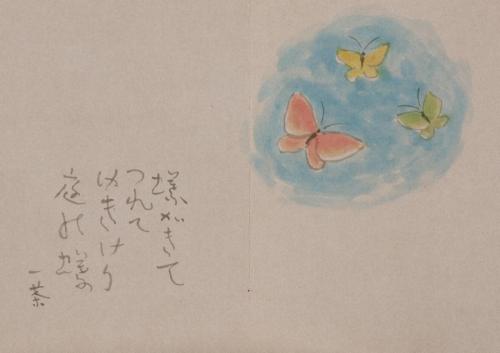 蝶がきて
つれて
ゆきけり
庭の蝶
一茶